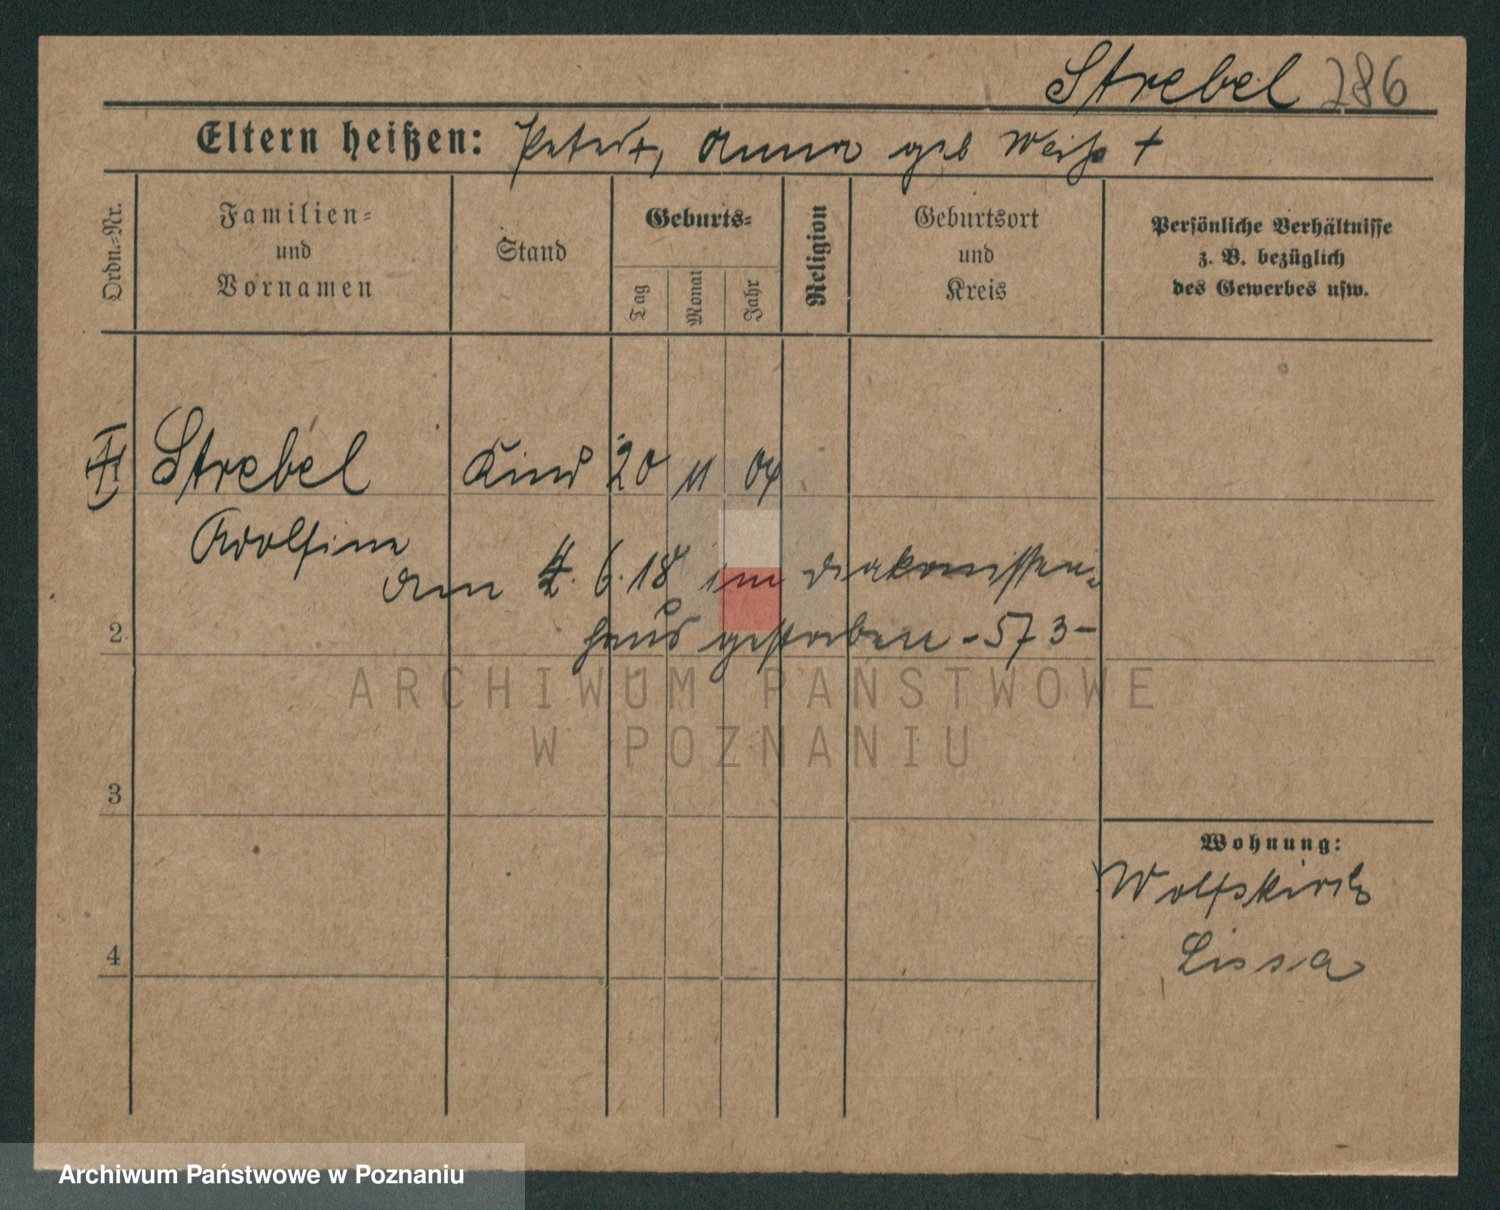 Strebel 286
Eltern heißen: Peter +, Anna geb Weiß +
Ordn.-Nr.
Familien-
und
Vornamen
Stand
Geburts-
Tag
Monat
Jahr
Religion
Geburtsort
und
Kreis
Persönliche Verhältnisse
z. B. bezüglich
des Gewerbes usw.
Strebel Kind 20 11 04
Adolfine
am 4. 6. 18 im Diakonissen-
haus gestorben - 573 -
2
ARCHIWUM PAŃSTWOWE
W POZNANIU
3
Wohnung:
Wolfskirch
Lissa
4
Archiwum Państwowe w Poznaniu